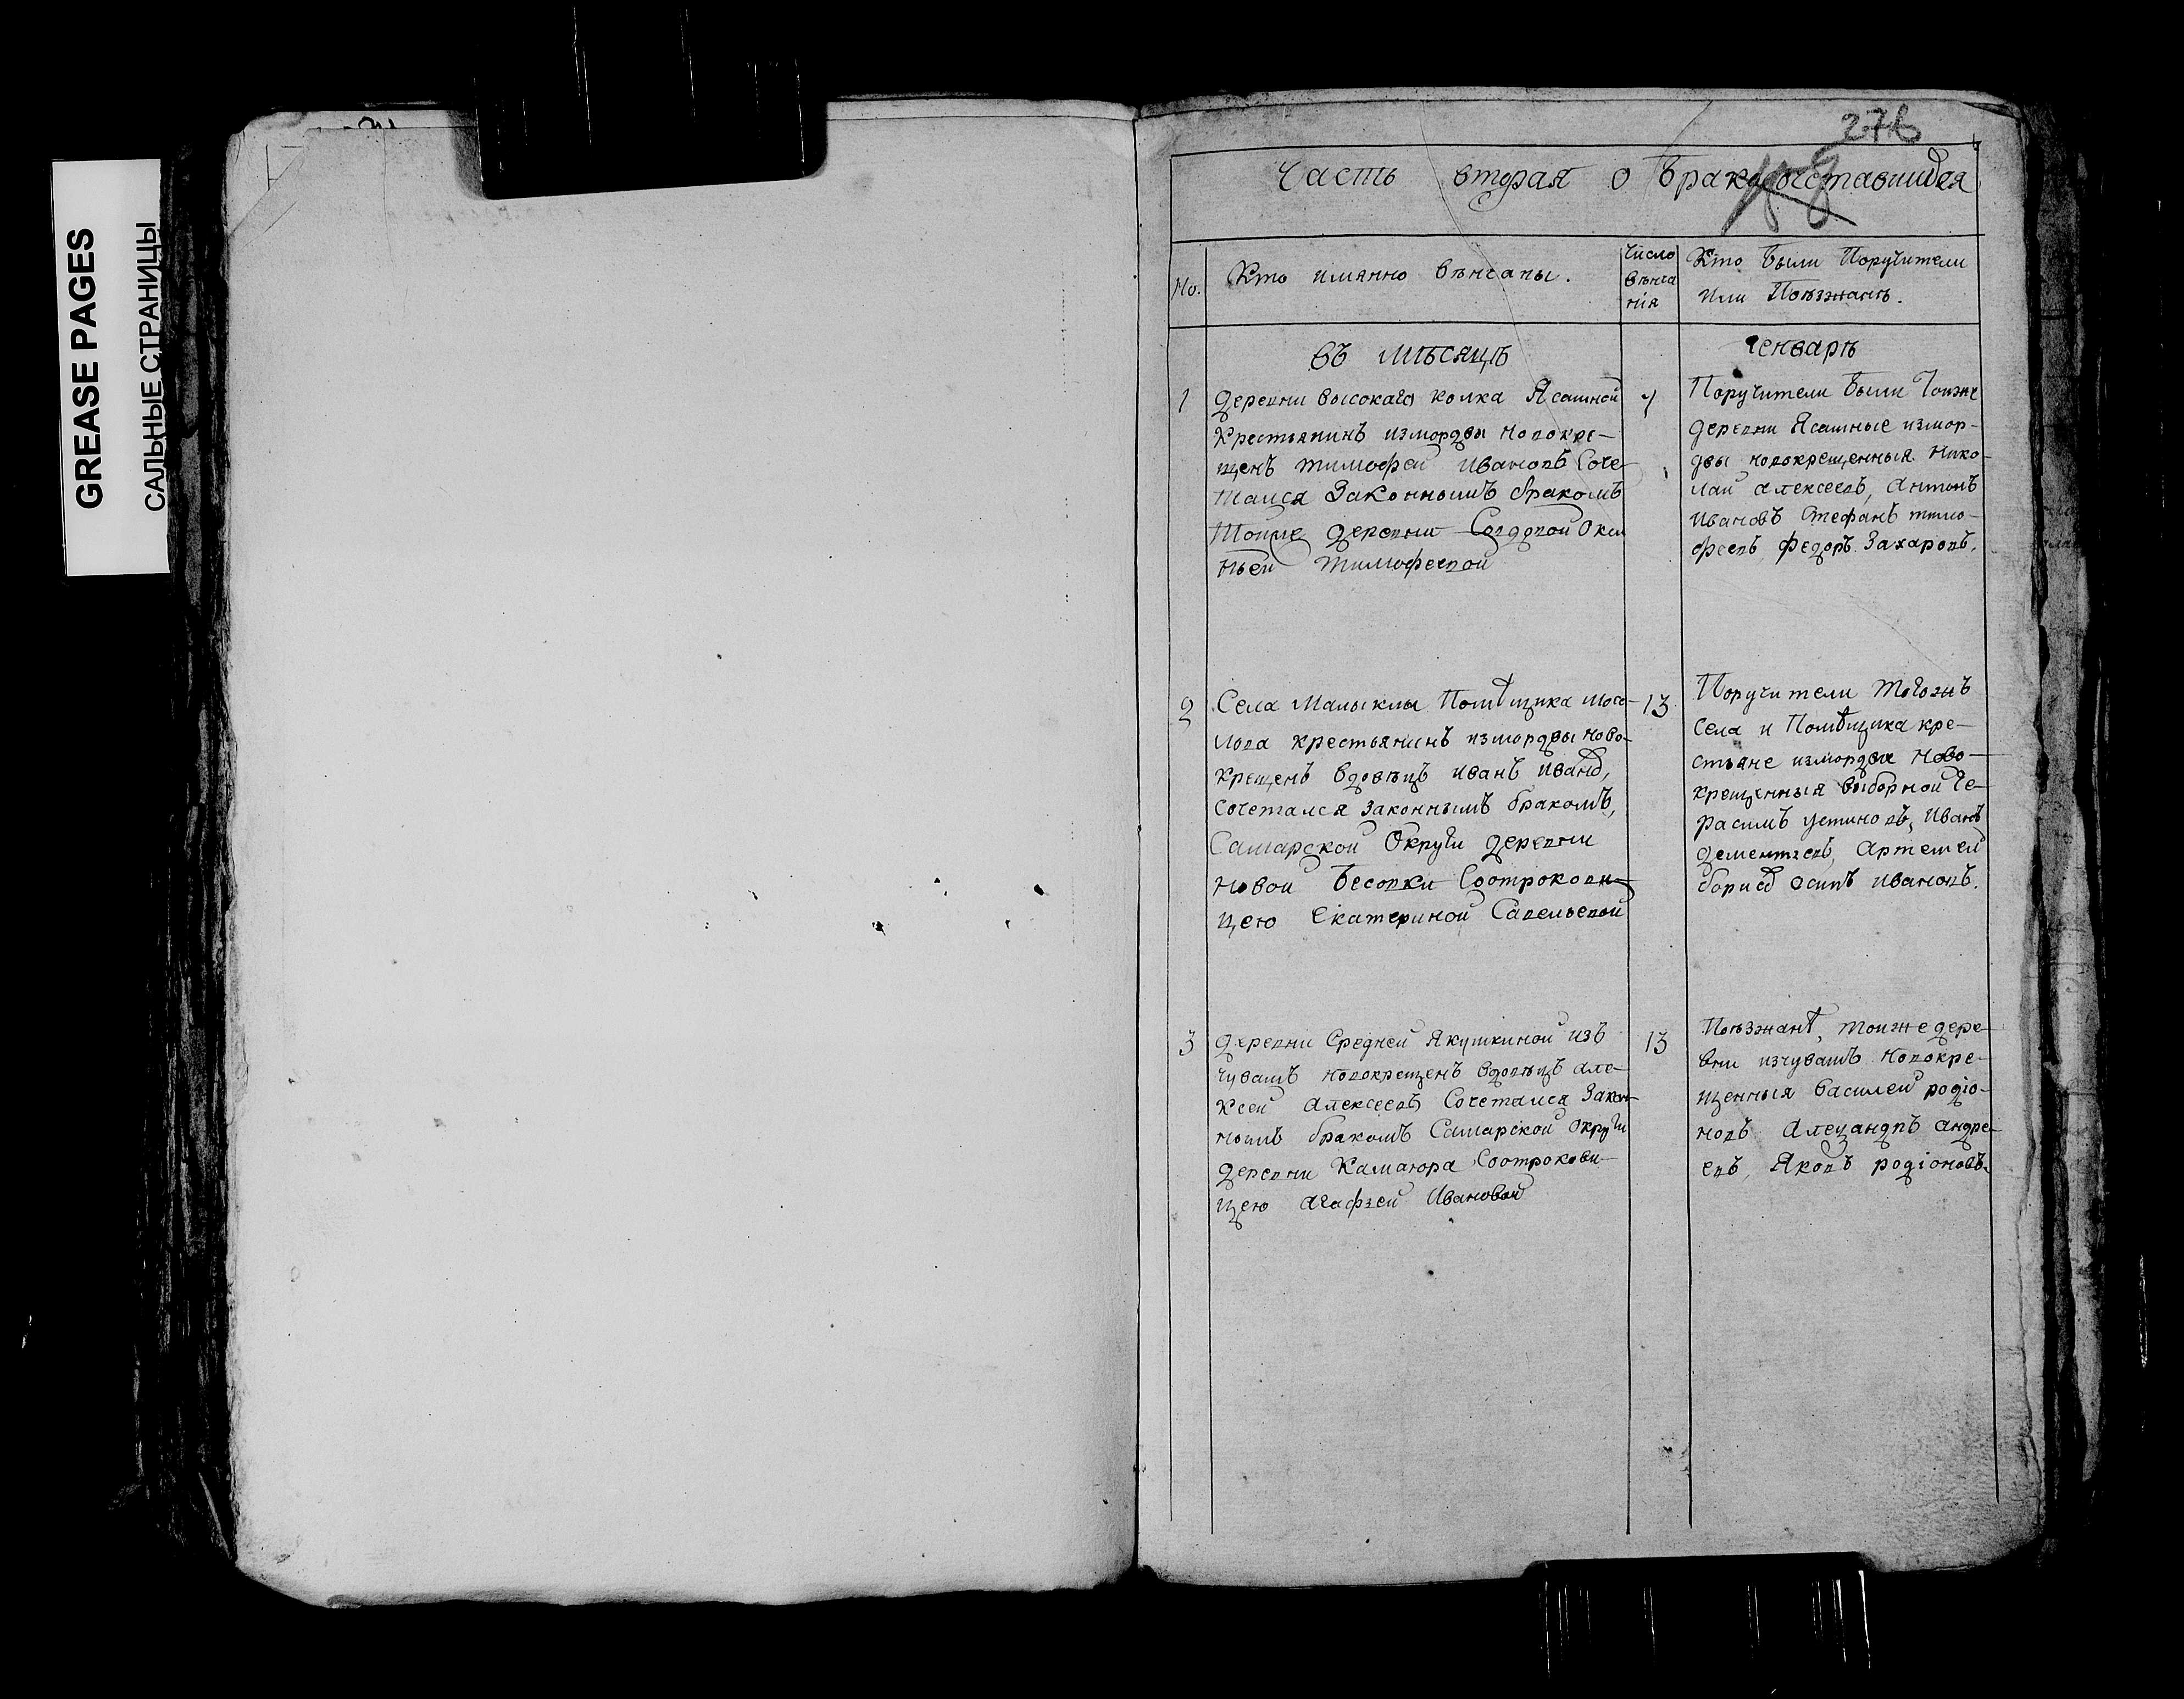 GREASE PAGES
САЛЬНЫЕ СТРАНИЦЫ
Часть вторая о бракосочетавшихся
No.
Кто имянно венчаны.
Число
венча
нія
Кто были Поручители
или Поѣзжанѣ.
въ мѣсяцѣ
Генварѣ
1
деревни высокаго колка Ясашной
Крестьянинъ измордвы новокре-
щенъ тимофей Ивановъ Соче
тался Законнымъ бракомъ
Тойже деревни Окси
ньей тимофеевой
Поручители были Тоиже
деревни Ясашные измор-
двы новокрещенныя Нико-
лай алексеевъ, антонъ
Ивановъ Стефанъ тимо-
феевъ, Федоръ Захаровъ.
2
Села Малыклы Помѣщика Мосо-
лова крестьянинъ измордвы ново-
крещенъ вдовецъ иванъ иванов,
сочетался законнымъ бракомъ,
Самарской Округи деревни
новой Бесовки Соотрокови-
цею Екатериной Савельевой
13
Поручители тогожъ
села и Помѣщика кре-
стьяне измордвы ново-
крещенныя выборной Ге-
расимъ устиновъ, Иванъ
дементьевъ, Артемей
борисов осипъ ивановъ.
3
деревни Средней Якушкиной изъ
чувашъ новокрещенъ вдовецъ але-
ксей алексеевъ Сочетался Закон-
нымъ бракомъ Самарской округи
деревни Камаюра Соотрокови-
цею агафьей Ивановой
13
Поѣзжанѣ, тоиже дере-
вни изчувашъ новокре-
щенныя василей родіо-
новъ Алеѯандръ андре-
евъ, Яковъ родіоновъ.